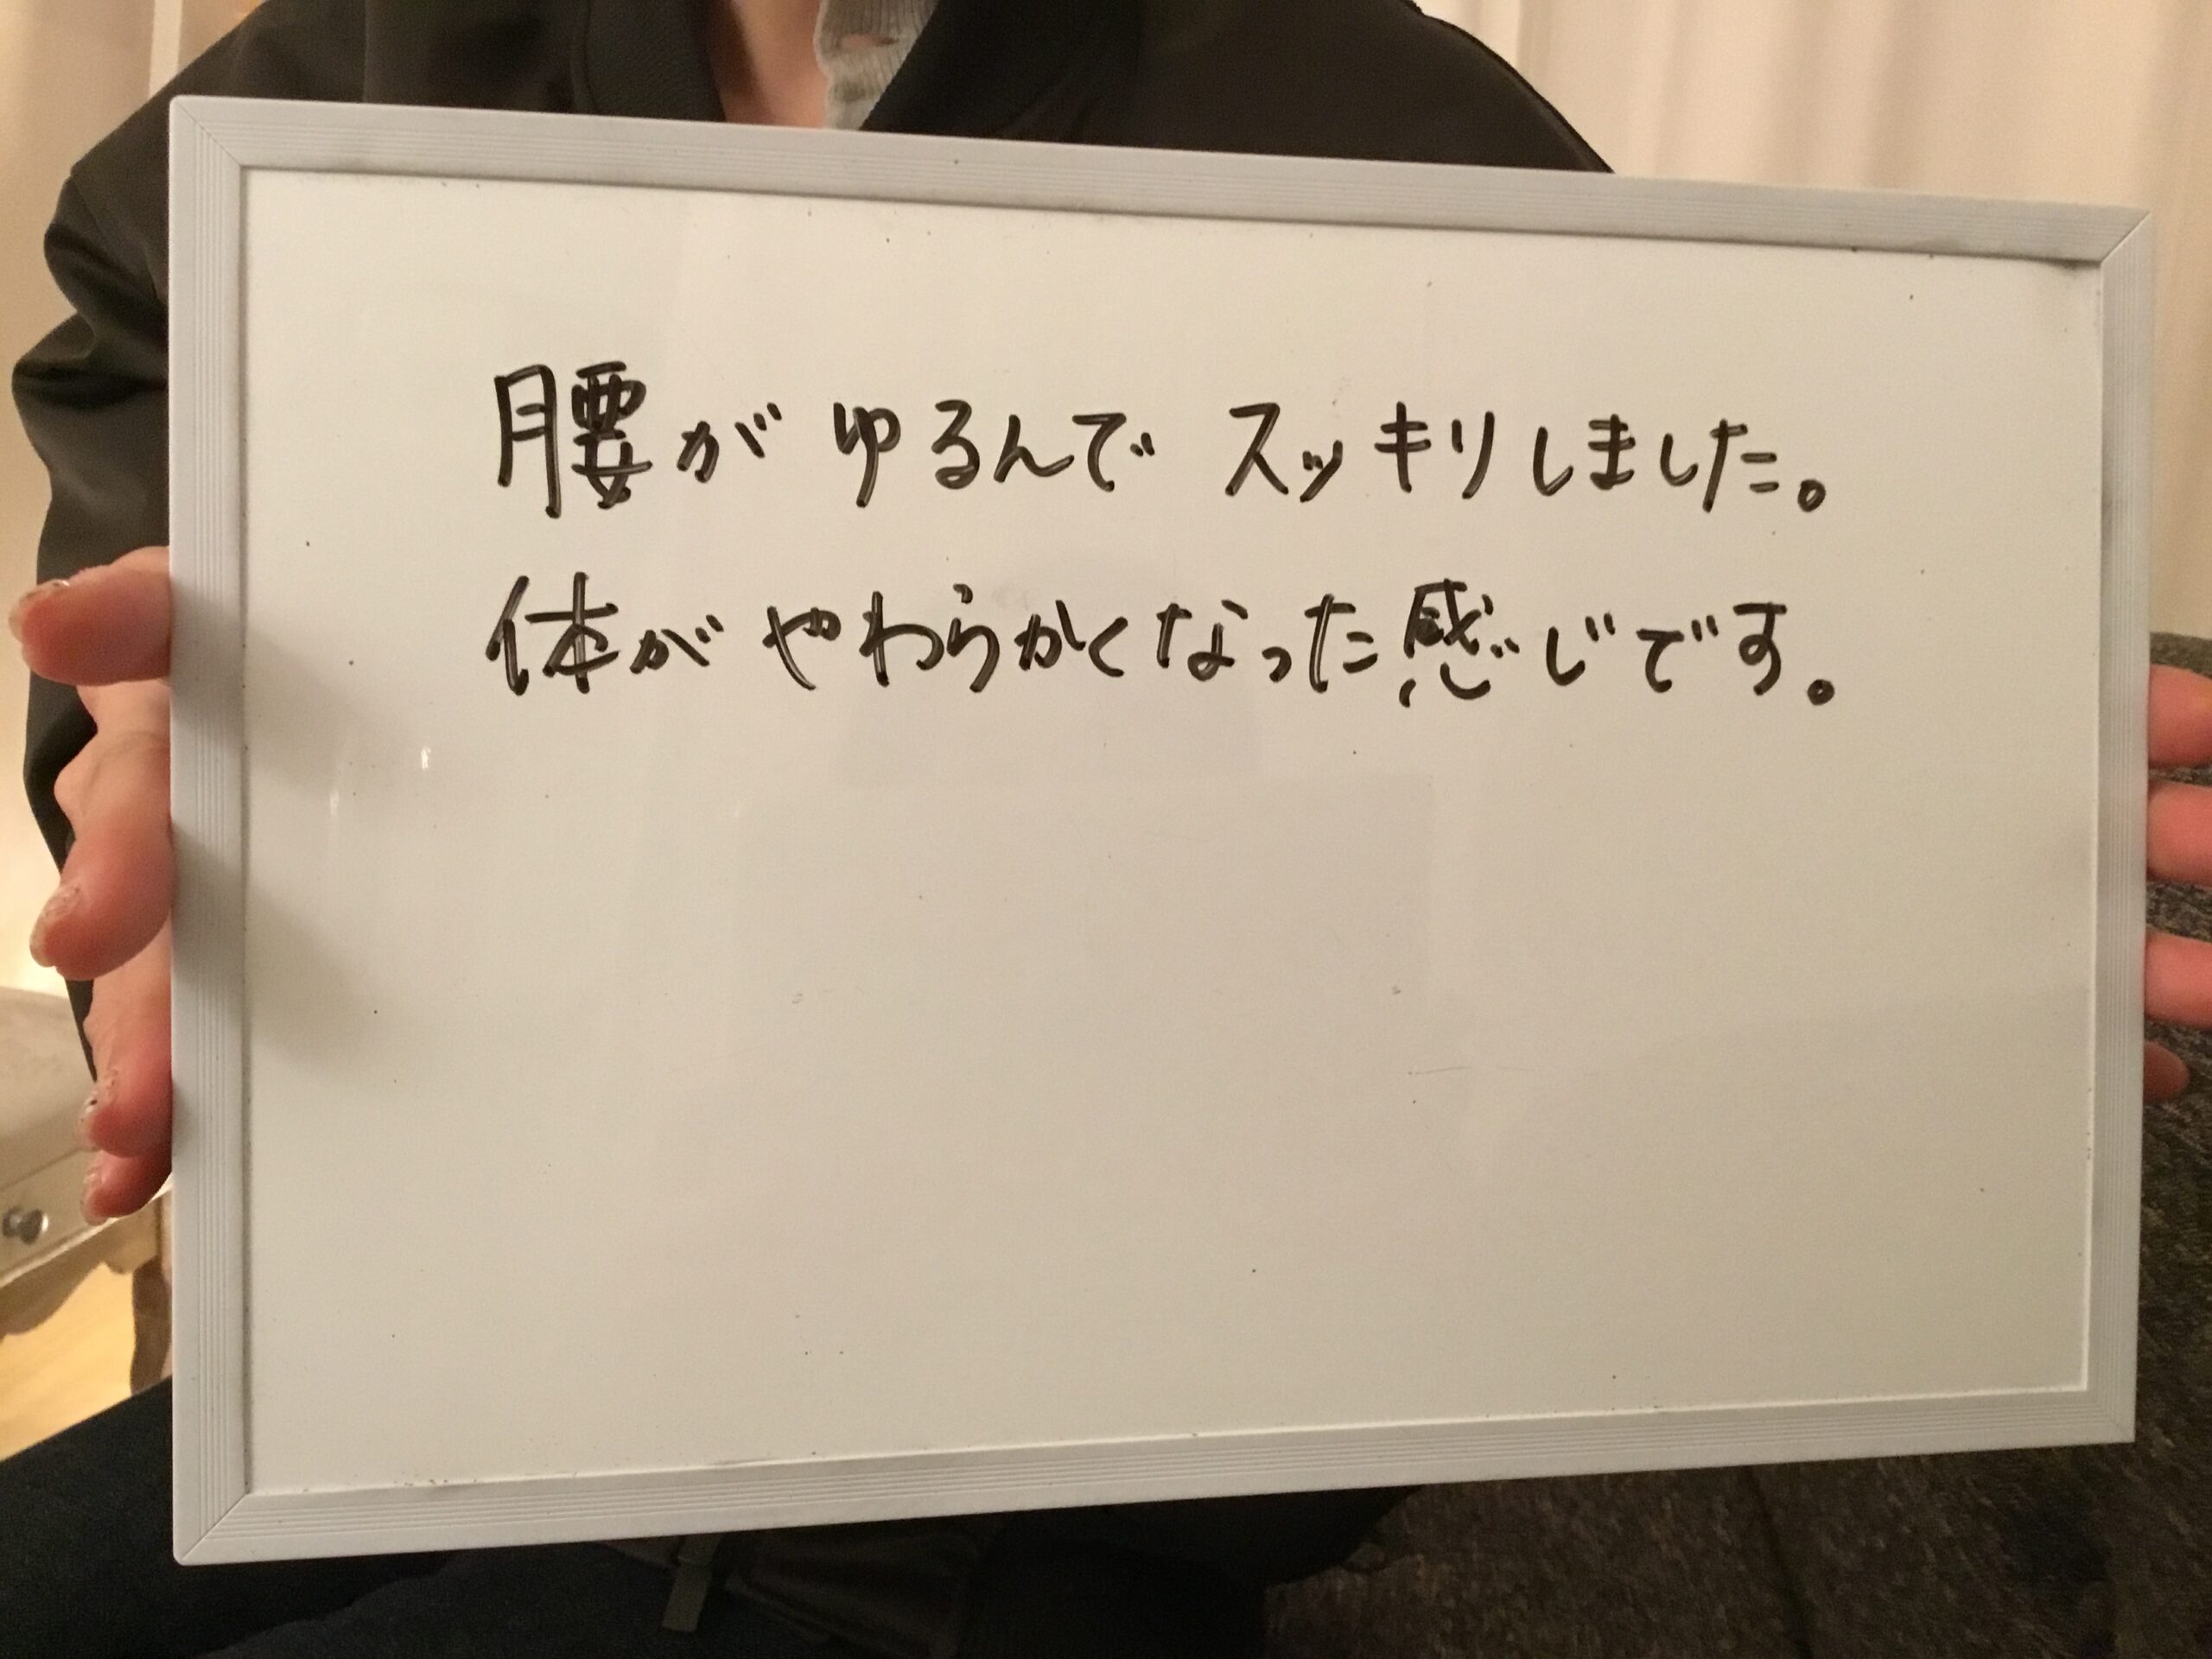 腰がゆるんでスッキリしました。
体がやわらかくなった感じです。